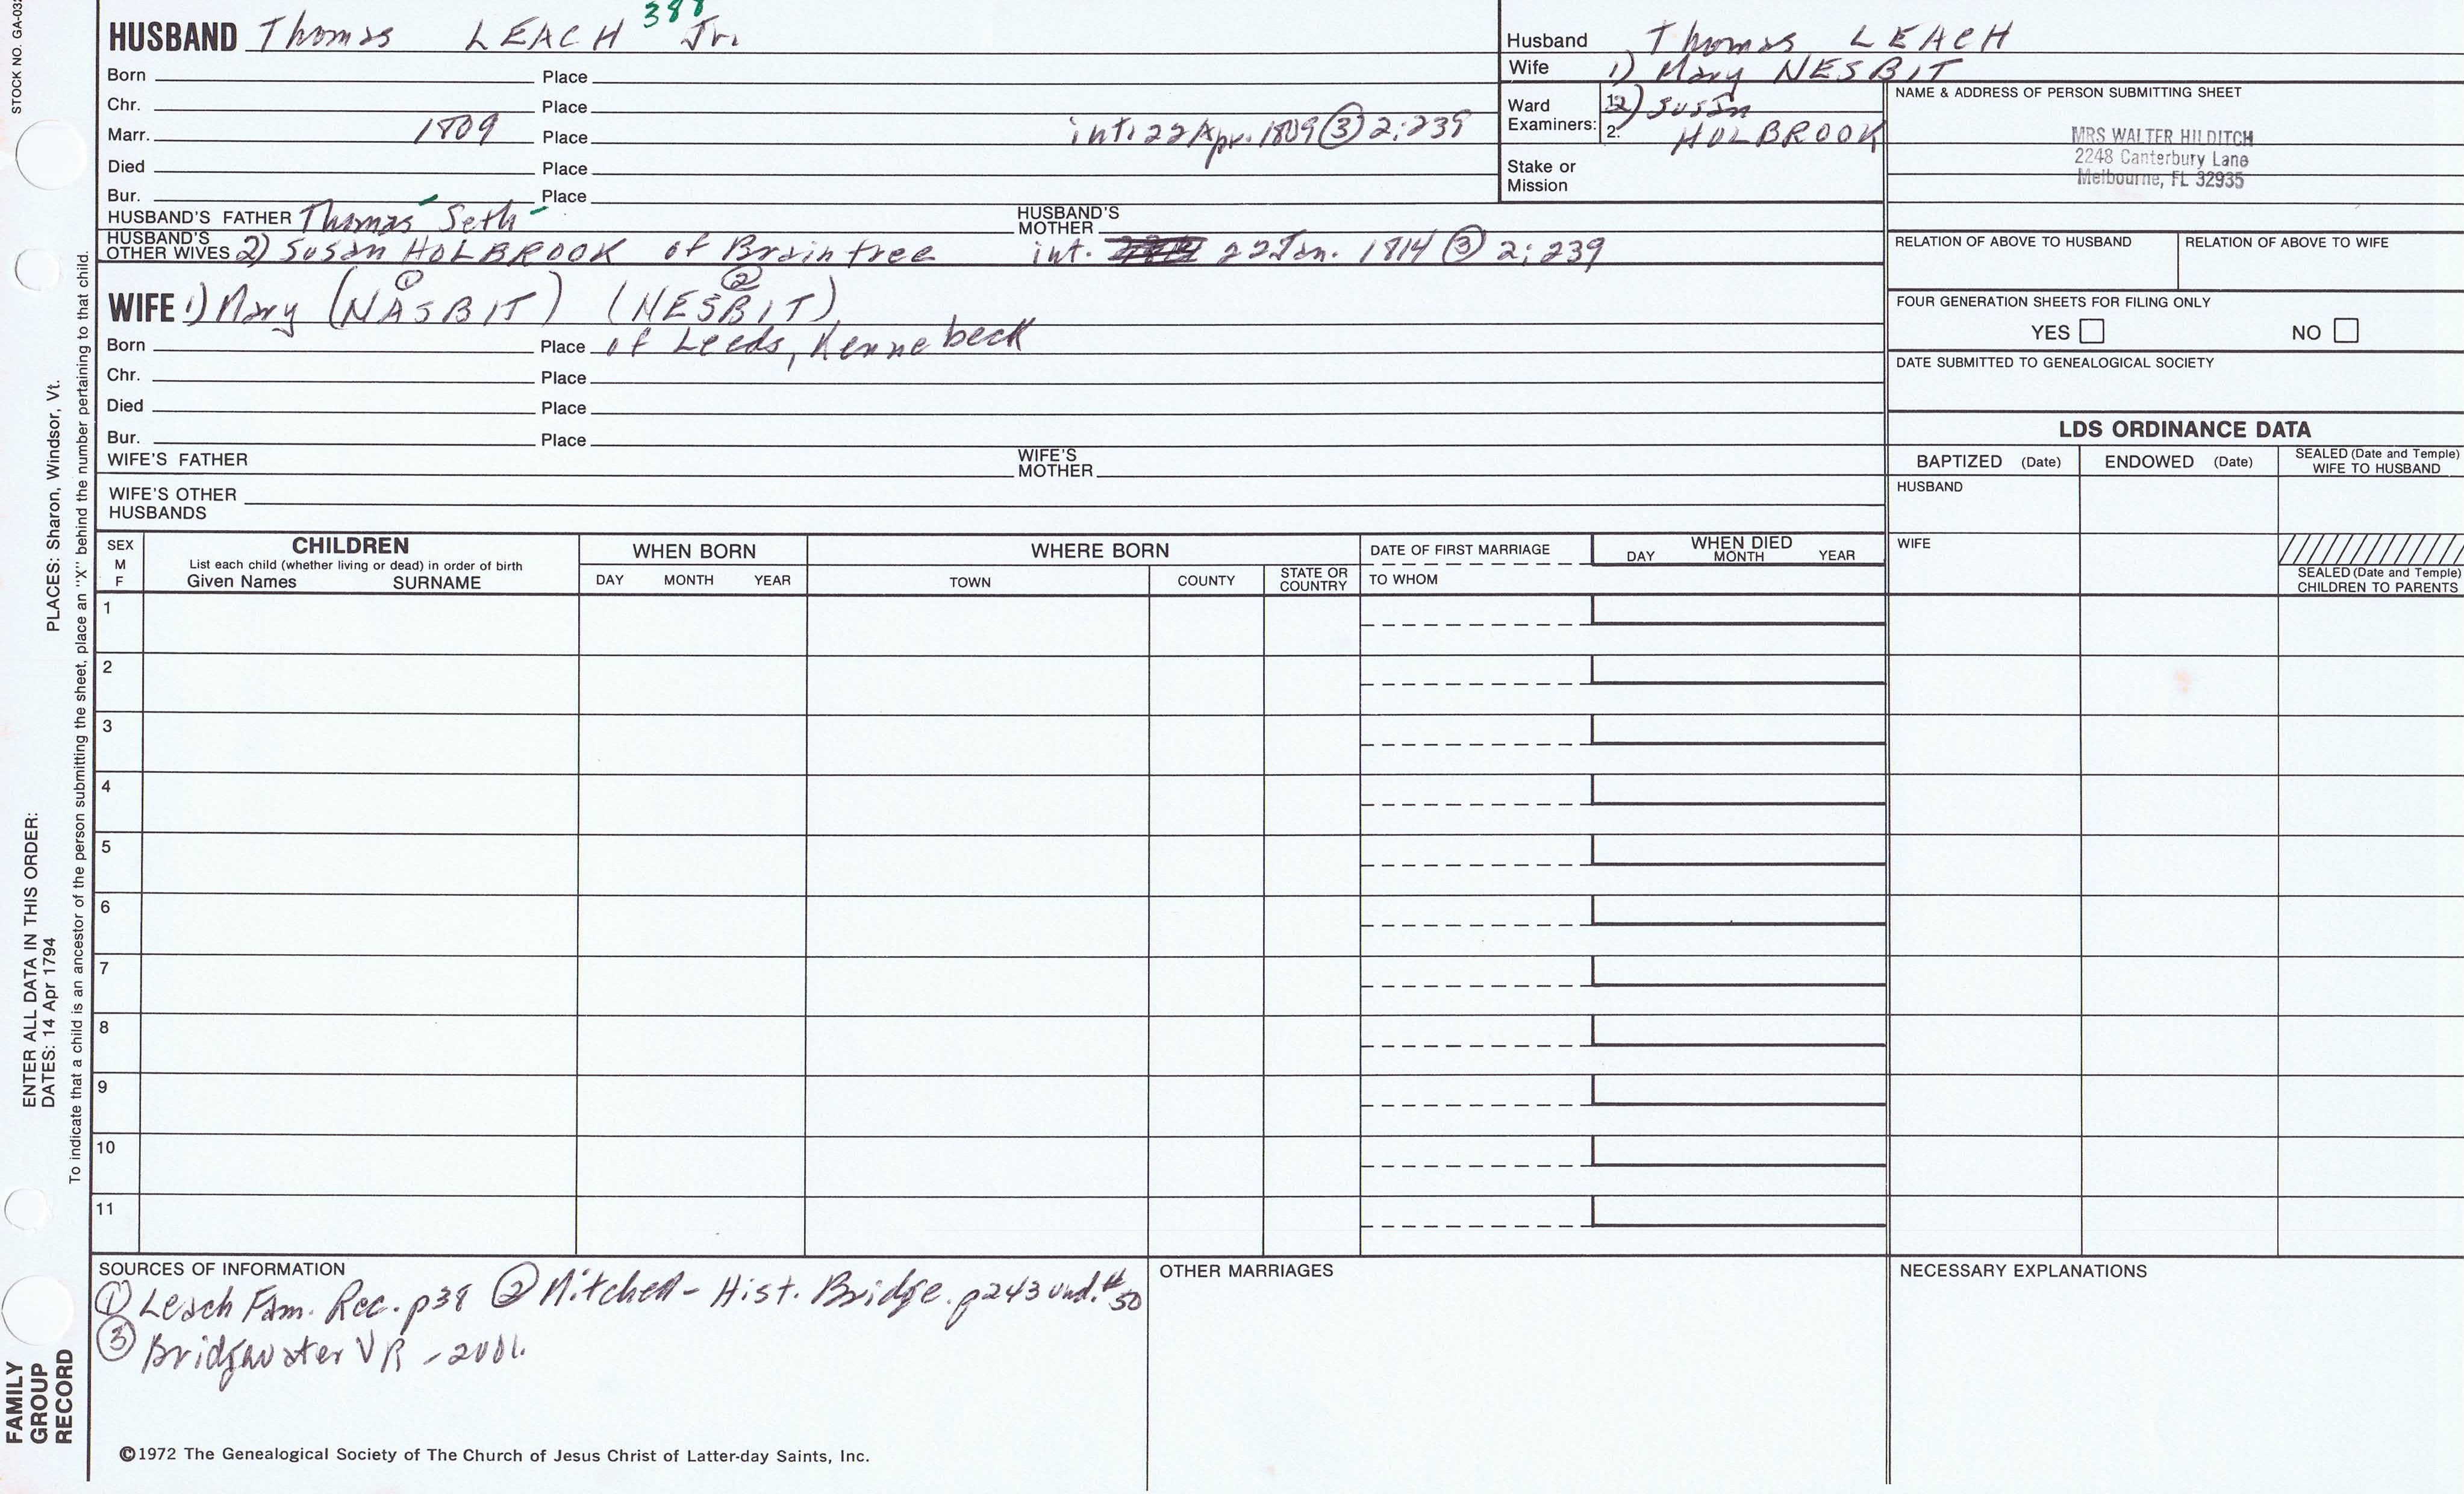 STOCK NO. GA-03
388
HUSBAND Thomas LEACH Jr.
Born Place
Chr. Place
Marr. 1809 Place int. 22 Apr. 1809 ③ 2:239
Died Place
Bur. Place
HUSBAND'S FATHER Thomas Seth HUSBAND'S MOTHER
HUSBAND'S OTHER WIVES 2) Susan HOLBROOK of Braintree int. 22 Jan. 1814 ③ 2:239
① ②
WIFE 1) Mary (NASBIT) (NESBIT)
Born Place of Leeds, Kennebeck
Chr. Place
Died Place
Bur. Place
WIFE'S FATHER WIFE'S MOTHER
WIFE'S OTHER HUSBANDS
Husband Thomas LEACH
Wife 1) Mary NESBIT
Ward Examiners: 1. 2) Susan
2. HOLBROOK
Stake or Mission
NAME & ADDRESS OF PERSON SUBMITTING SHEET
MRS WALTER HILDITCH
2248 Canterbury Lane
Melbourne, FL 32935
RELATION OF ABOVE TO HUSBAND RELATION OF ABOVE TO WIFE
FOUR GENERATION SHEETS FOR FILING ONLY
YES NO
DATE SUBMITTED TO GENEALOGICAL SOCIETY
LDS ORDINANCE DATA
BAPTIZED (Date) ENDOWED (Date) SEALED (Date and Temple) WIFE TO HUSBAND
HUSBAND
WIFE
SEALED (Date and Temple) CHILDREN TO PARENTS
SEX M F
CHILDREN
List each child (whether living or dead) in order of birth
Given Names SURNAME
WHEN BORN
DAY MONTH YEAR
WHERE BORN
TOWN COUNTY STATE OR COUNTRY
DATE OF FIRST MARRIAGE
TO WHOM
WHEN DIED
DAY MONTH YEAR
1
2
3
4
5
6
7
8
9
10
11
SOURCES OF INFORMATION
① Leach Fam. Rec. p38 ② Mitchell - Hist. Bridge. p243 und. #50
③ Bridgewater VR - 2vol.
OTHER MARRIAGES
NECESSARY EXPLANATIONS
©1972 The Genealogical Society of The Church of Jesus Christ of Latter-day Saints, Inc.
FAMILY GROUP RECORD
ENTER ALL DATA IN THIS ORDER:
DATES: 14 Apr 1794 PLACES: Sharon, Windsor, Vt.
To indicate that a child is an ancestor of the person submitting the sheet, place an "X" behind the number pertaining to that child.